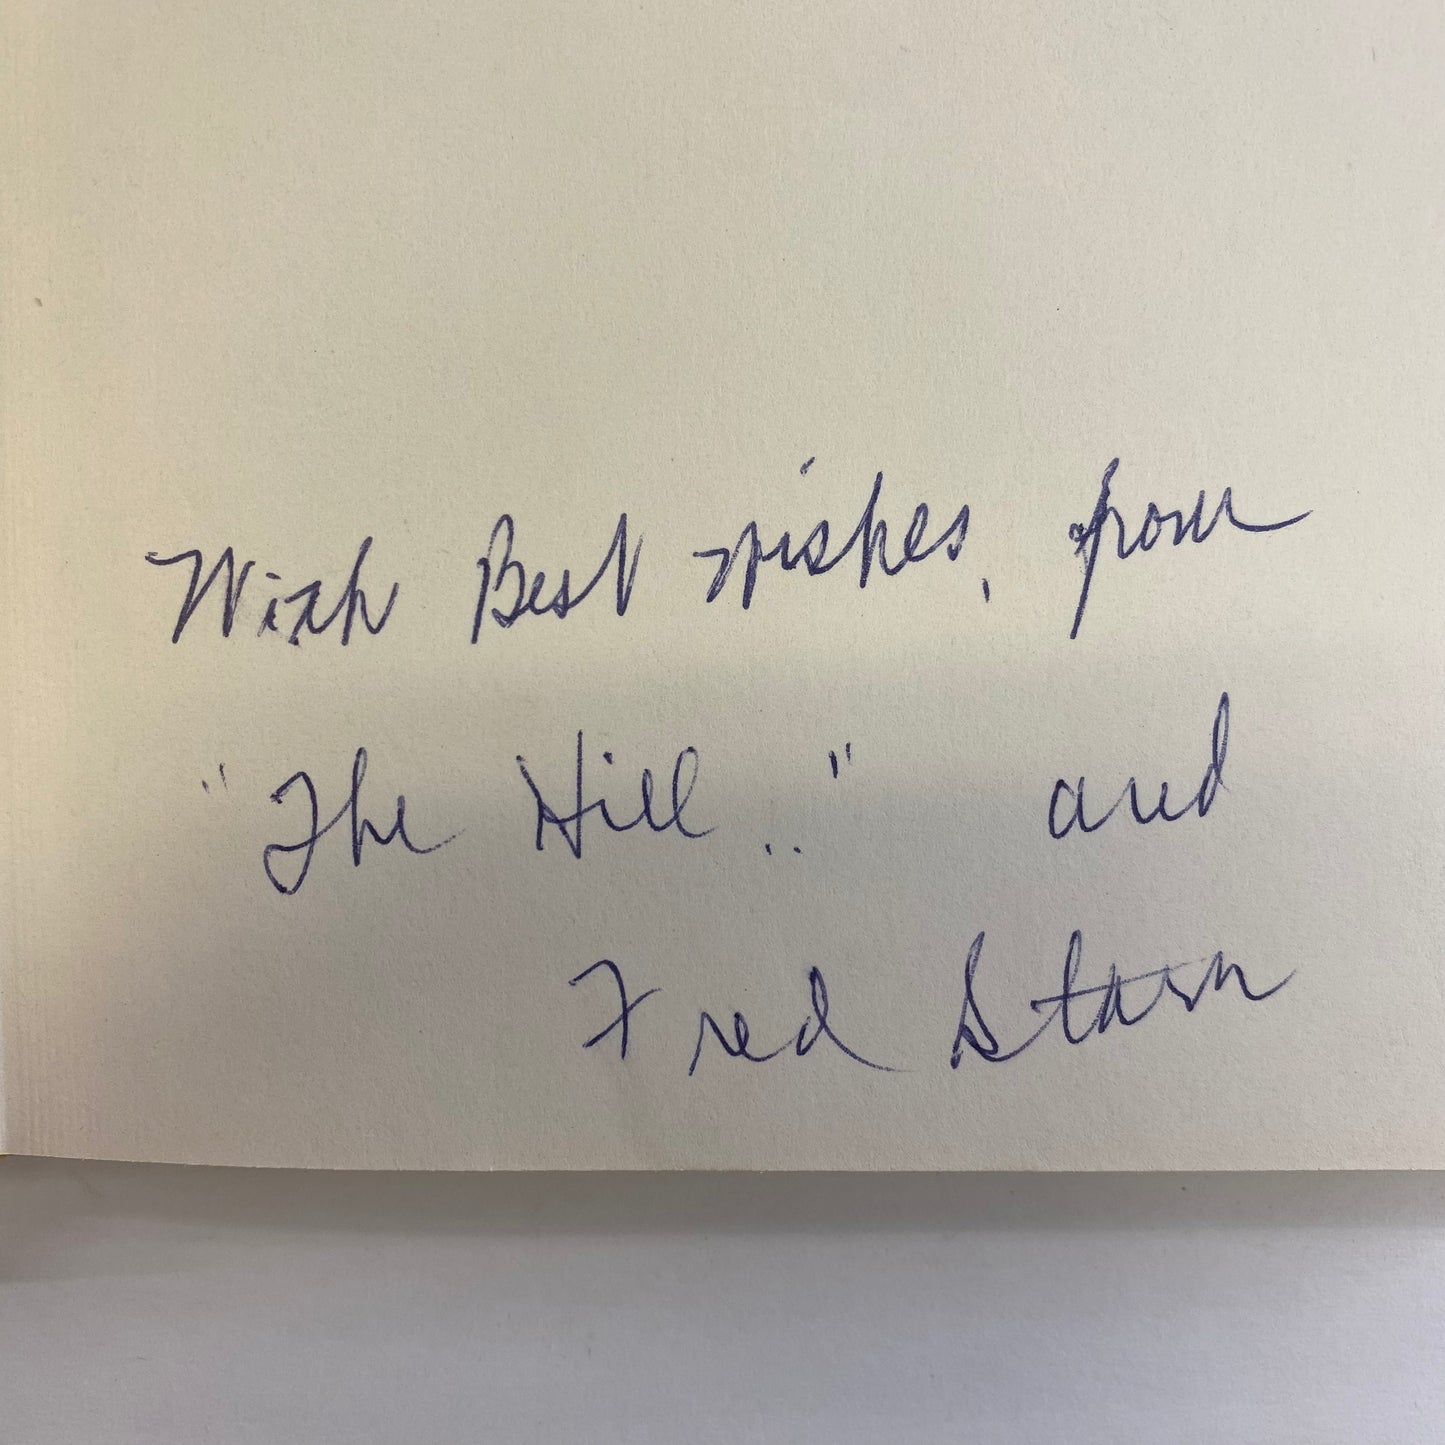 With Best Wishes, from
"The Hill.." and
Fred Starn